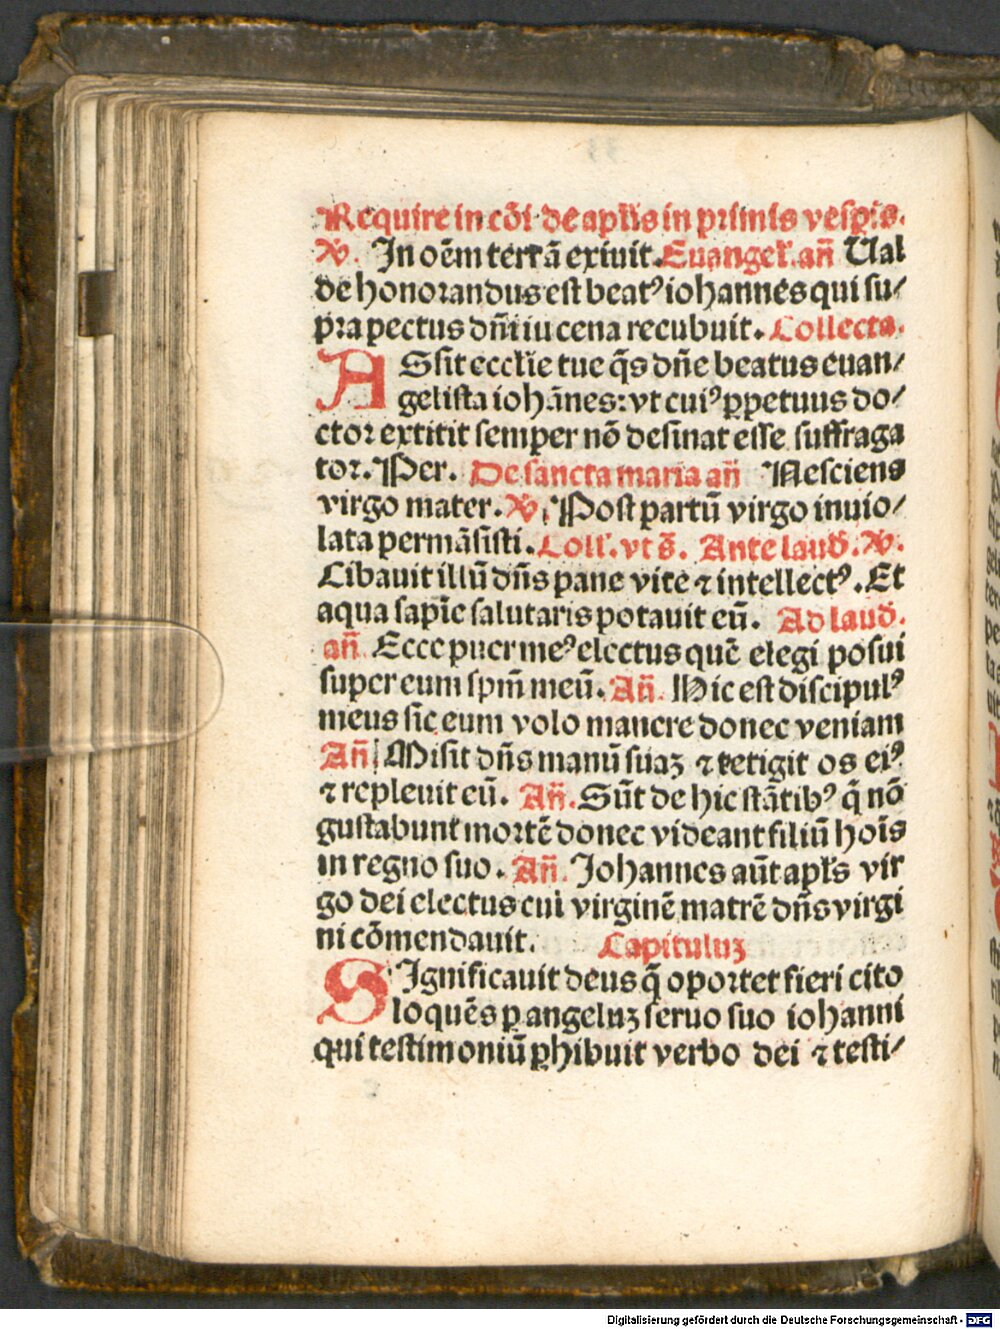 Require in cōi de apl̄is in primis vesp̄is.
℣. In oēm terrā exiuit. Euangel̄. an̄ Ual
de honorandus est beatꝰ iohannes qui su⸗
pra pectus dn̄i in cena recubuit. Collecta.
ASsit eccl̄ie tue q̄s dn̄e beatus euan⸗
gelista iohānes: vt cuiꝰ ꝑpetuus do⸗
ctor extitit semper nō desinat esse suffraga
tor. Per. De sancta maria an̄ Nesciens
virgo mater. ℣. Post partū virgo inuio⸗
lata permāsisti. Coll̄. vt s̄. Ante laud̄. ℣.
Cibauit illū dn̄s pane vite ⁊ intellectꝰ. Et
aqua sapīe salutaris potauit eū. Ad laud̄.
an̄. Ecce puer meꝰ electus quē elegi posui
super eum spm̄ meū. An̄. Hic est discipulꝰ
meus sic eum volo manere donec veniam
An̄ Misit dn̄s manū suaꝫ ⁊ tetigit os eiꝰ
⁊ repleuit eū. An̄. Sūt de hic stātibꝰ q̄ nō
gustabunt mortē donec videant filiū hoīs
in regno suo. An̄. Iohannes aūt apl̄s vir
go dei electus cui virginē matrē dn̄s virgi
ni cōmendauit. Capituluꝫ
SIgnificauit deus q̄ oportet fieri cito
loquēs ꝑ angeluꝫ seruo suo iohanni
qui testimoniū ꝓhibuit verbo dei ⁊ testi⸗
Digitalisierung gefördert durch die Deutsche Forschungsgemeinschaft - DFG